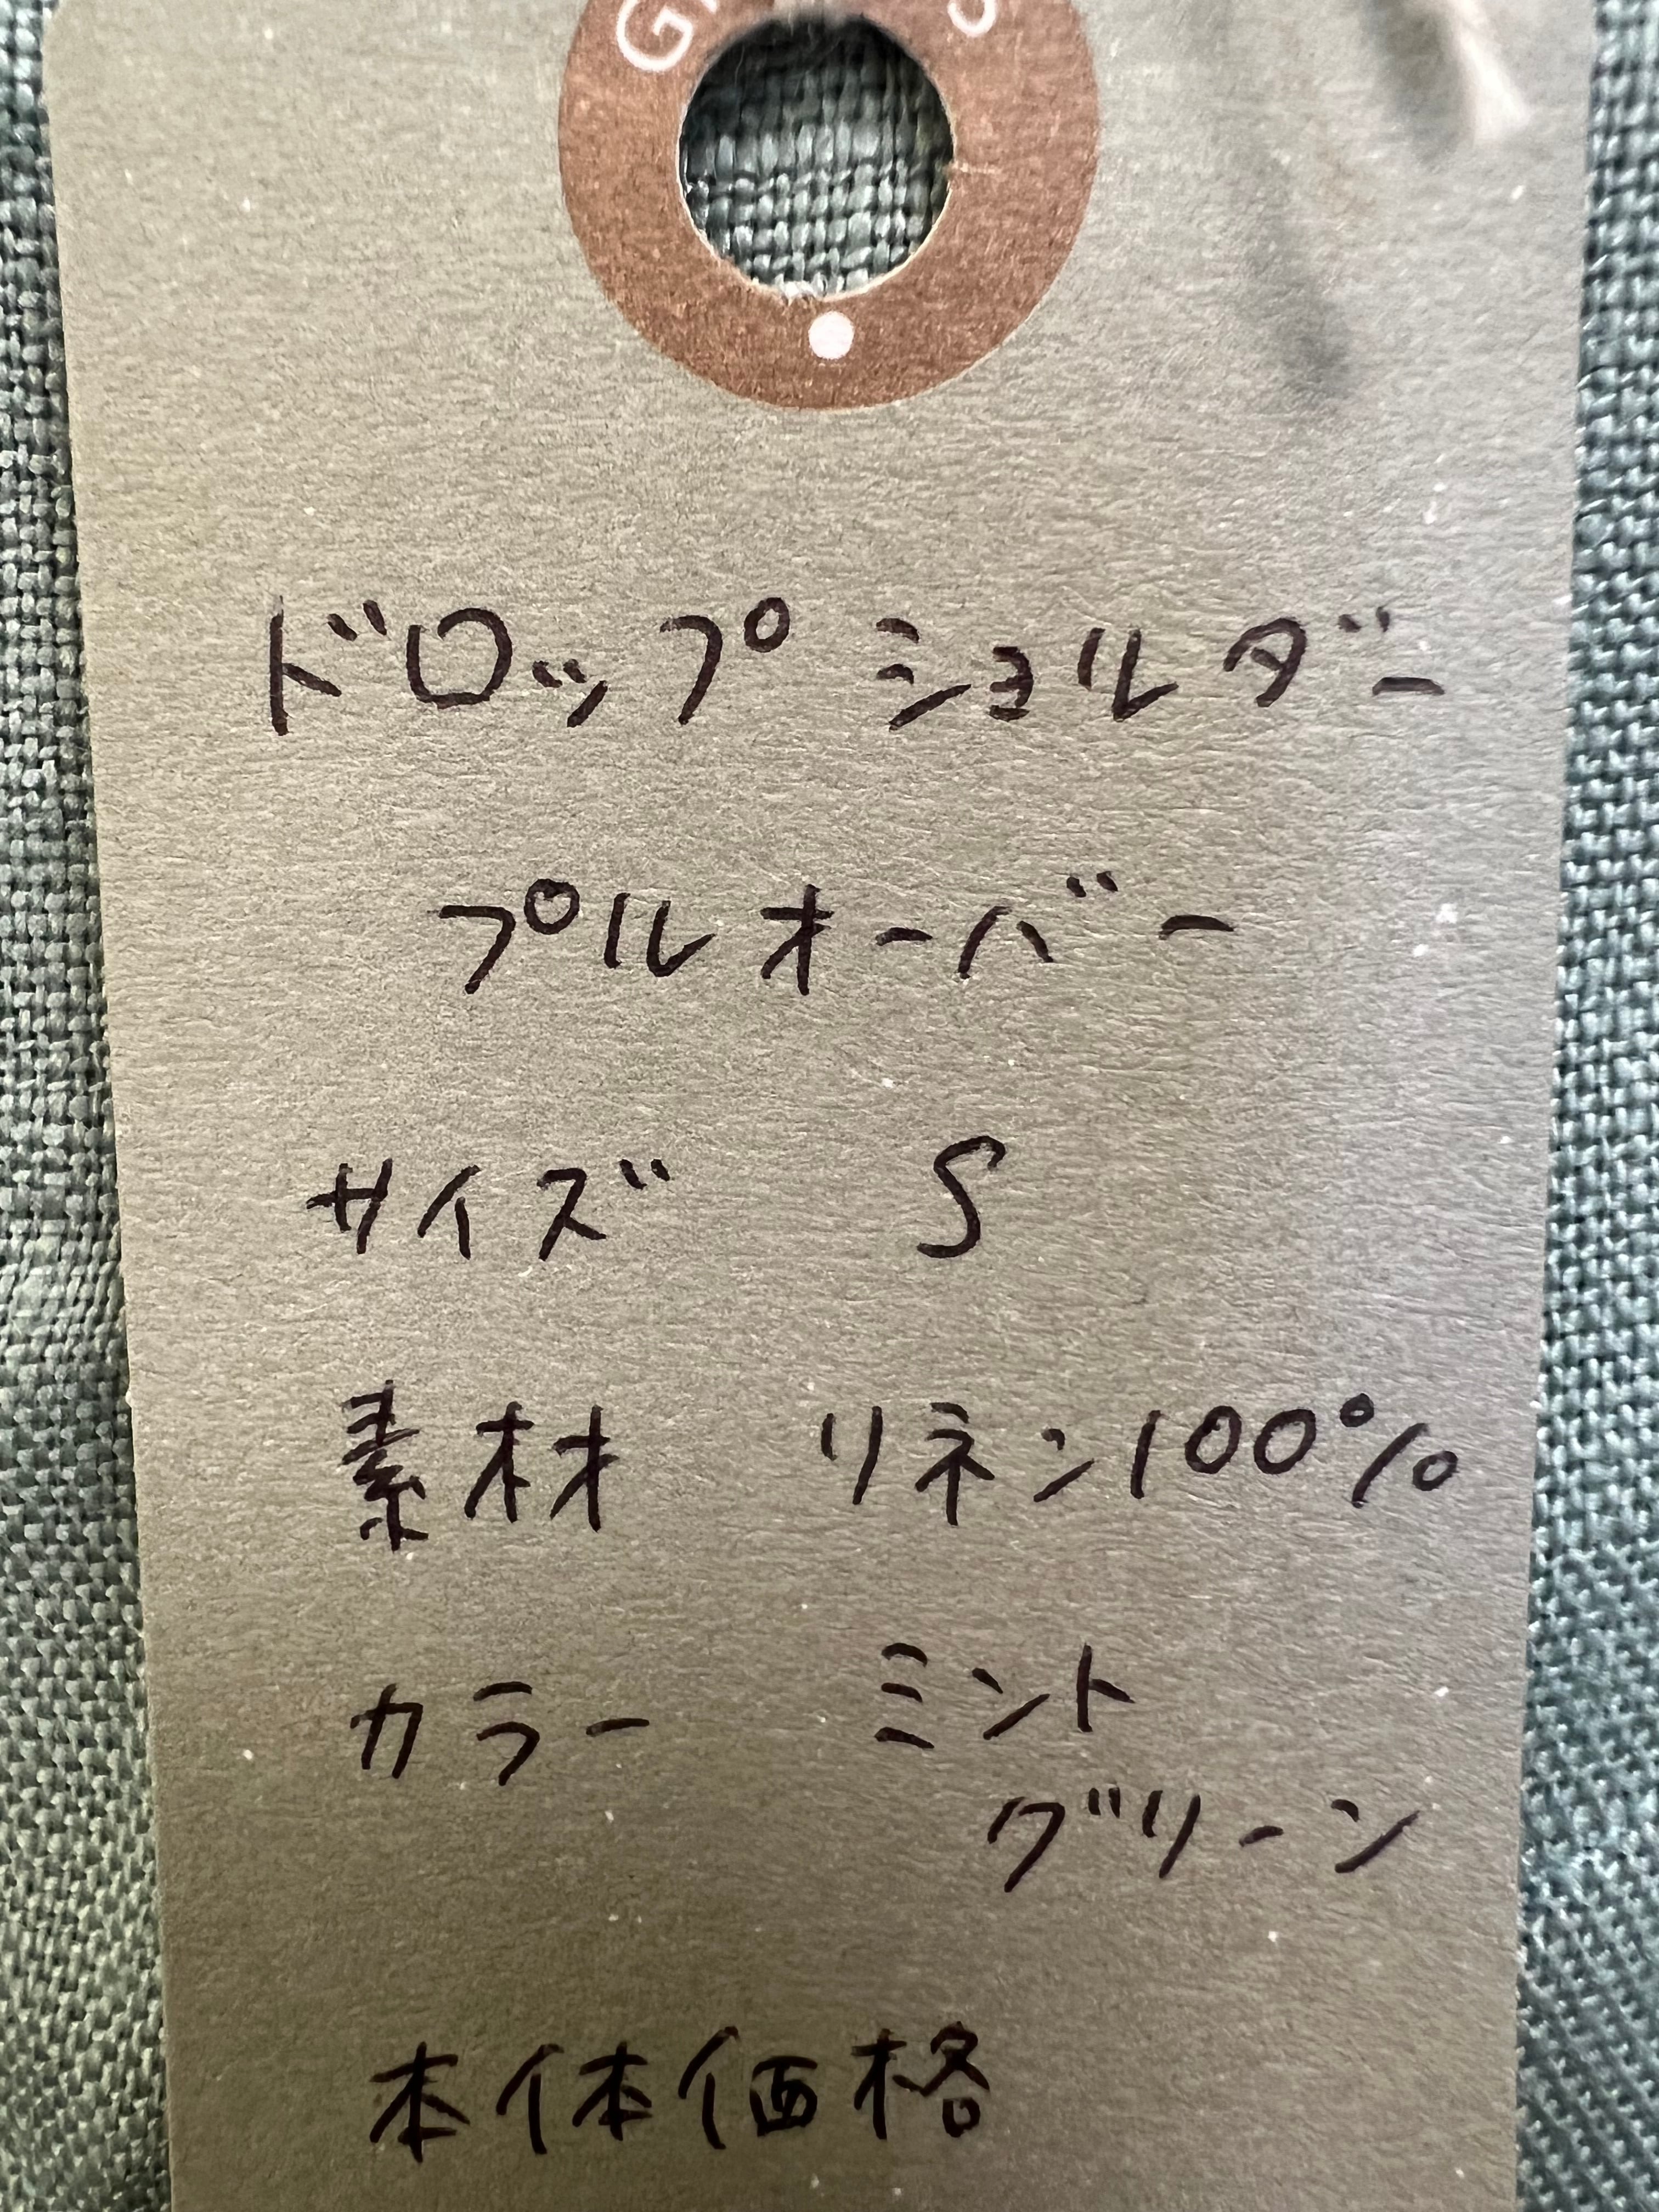 ドロップショルダー
プルオーバー
サイズ S
素材 リネン100%
カラー ミント
グリーン
本体価格